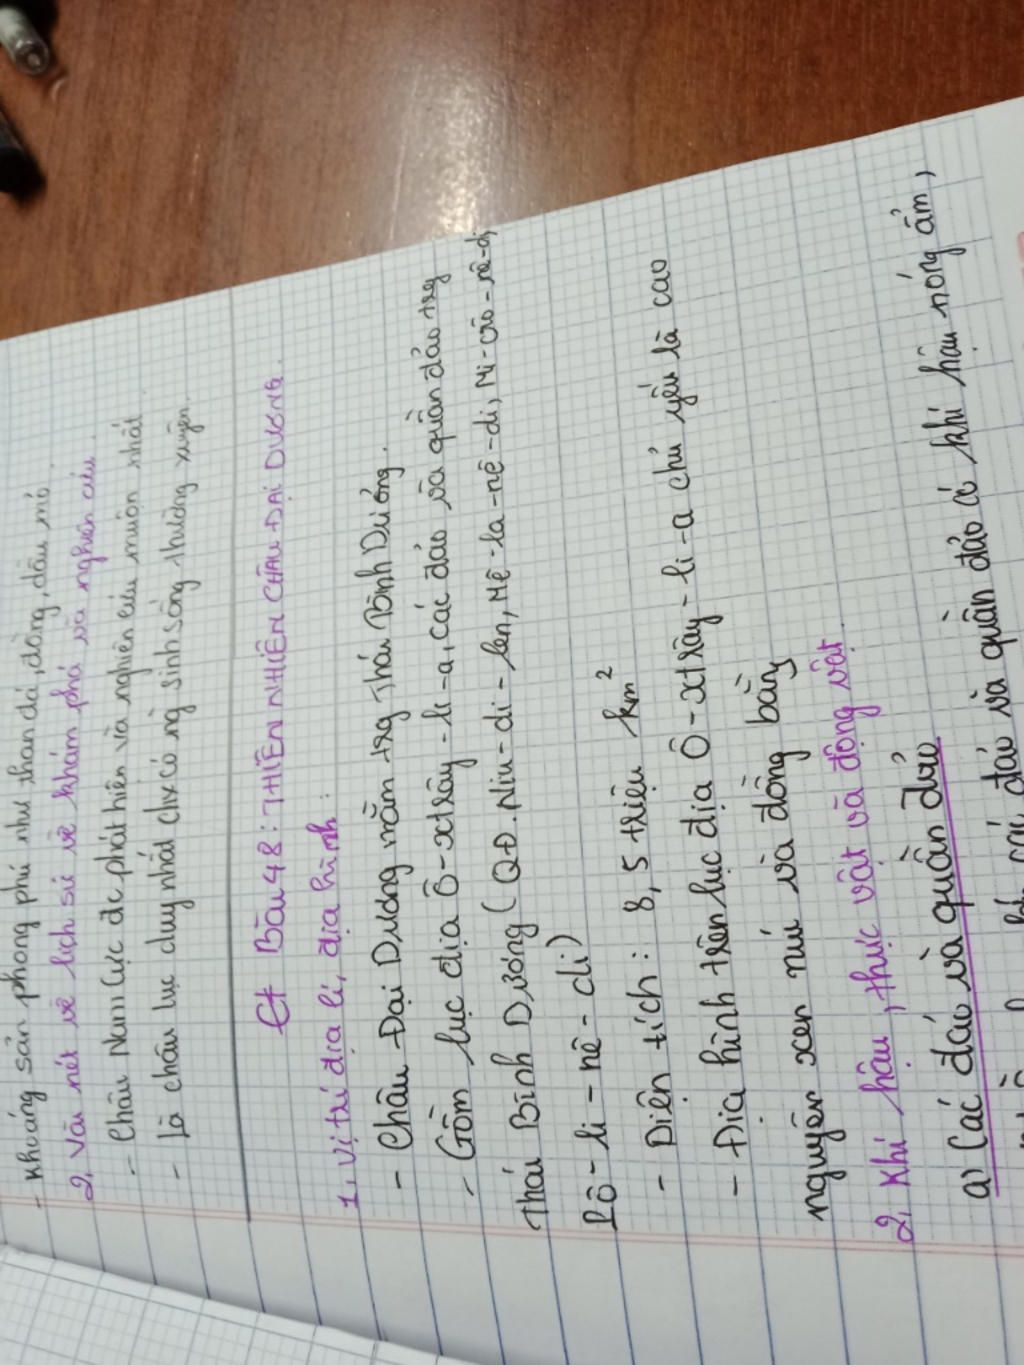 - Khoáng sản phong phú như than đá, đồng, dầu mỏ.
2, Vài nét về lịch sử về khám phá và nghiên cứu.
- Châu Nam Cực đc phát hiện và nghiên cứu muộn nhất
- Là châu lục duy nhất chx có ng sinh sống thường xuyên.
Bài 48: THIÊN NHIÊN CHÂU ĐẠI DƯƠNG.
1, Vị trí địa lí, địa hình:
- Châu Đại Dương nằm trg Thái Bình Dương.
- Gồm lục địa Ô-xtrây-li-a, các đảo và quần đảo trg
Thái Bình Dương (QĐ. Niu-di-len, Mê-la-nê-di, Mi-crô-nê-di,
Pô-li-nê-di)
- Diện tích: 8,5 triệu km²
- Địa hình trên lục địa Ô-xtrây-li-a chủ yếu là cao
nguyên xen núi và đồng bằng
2, Khí hậu, thực vật và động vật.
a) Các đảo và quần đảo
các đảo và quần đảo có khí hậu nóng ẩm,